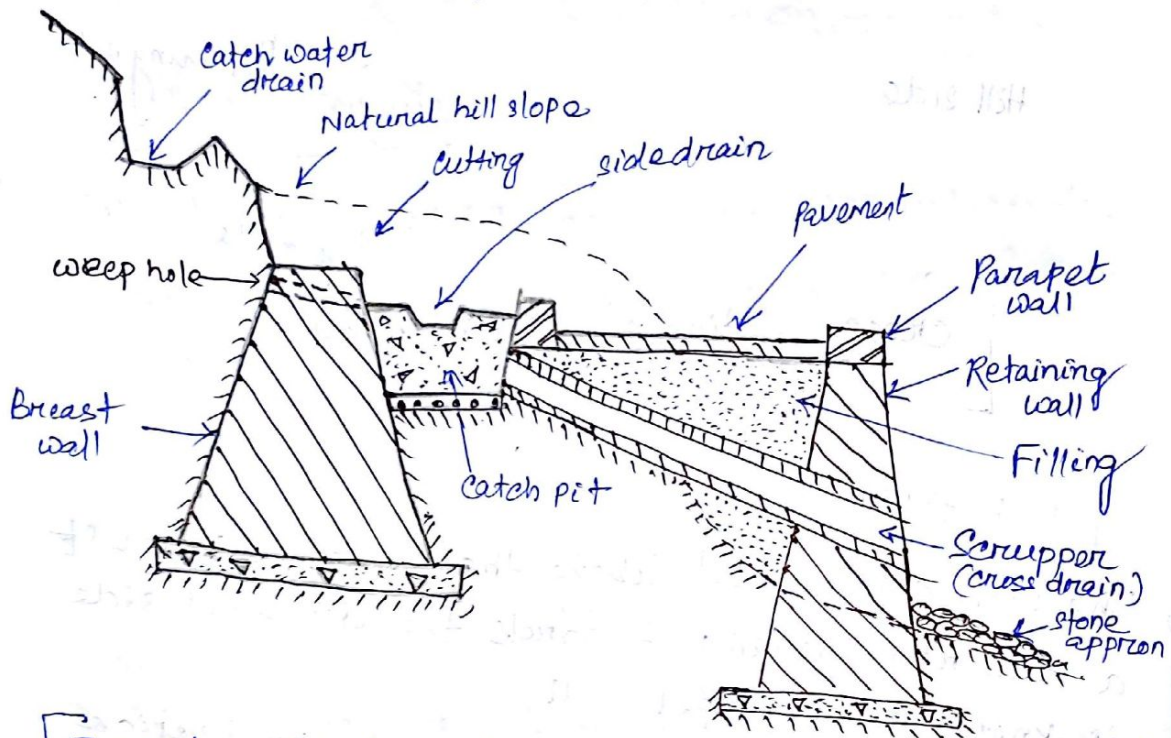 Catch water
drain
Natural hill slope
Cutting
side drain
Pavement
weep hole
Parapet
wall
Retaining
wall
Breast
wall
Filling
Catch pit
Scrupper
(cross drain)
stone
appron